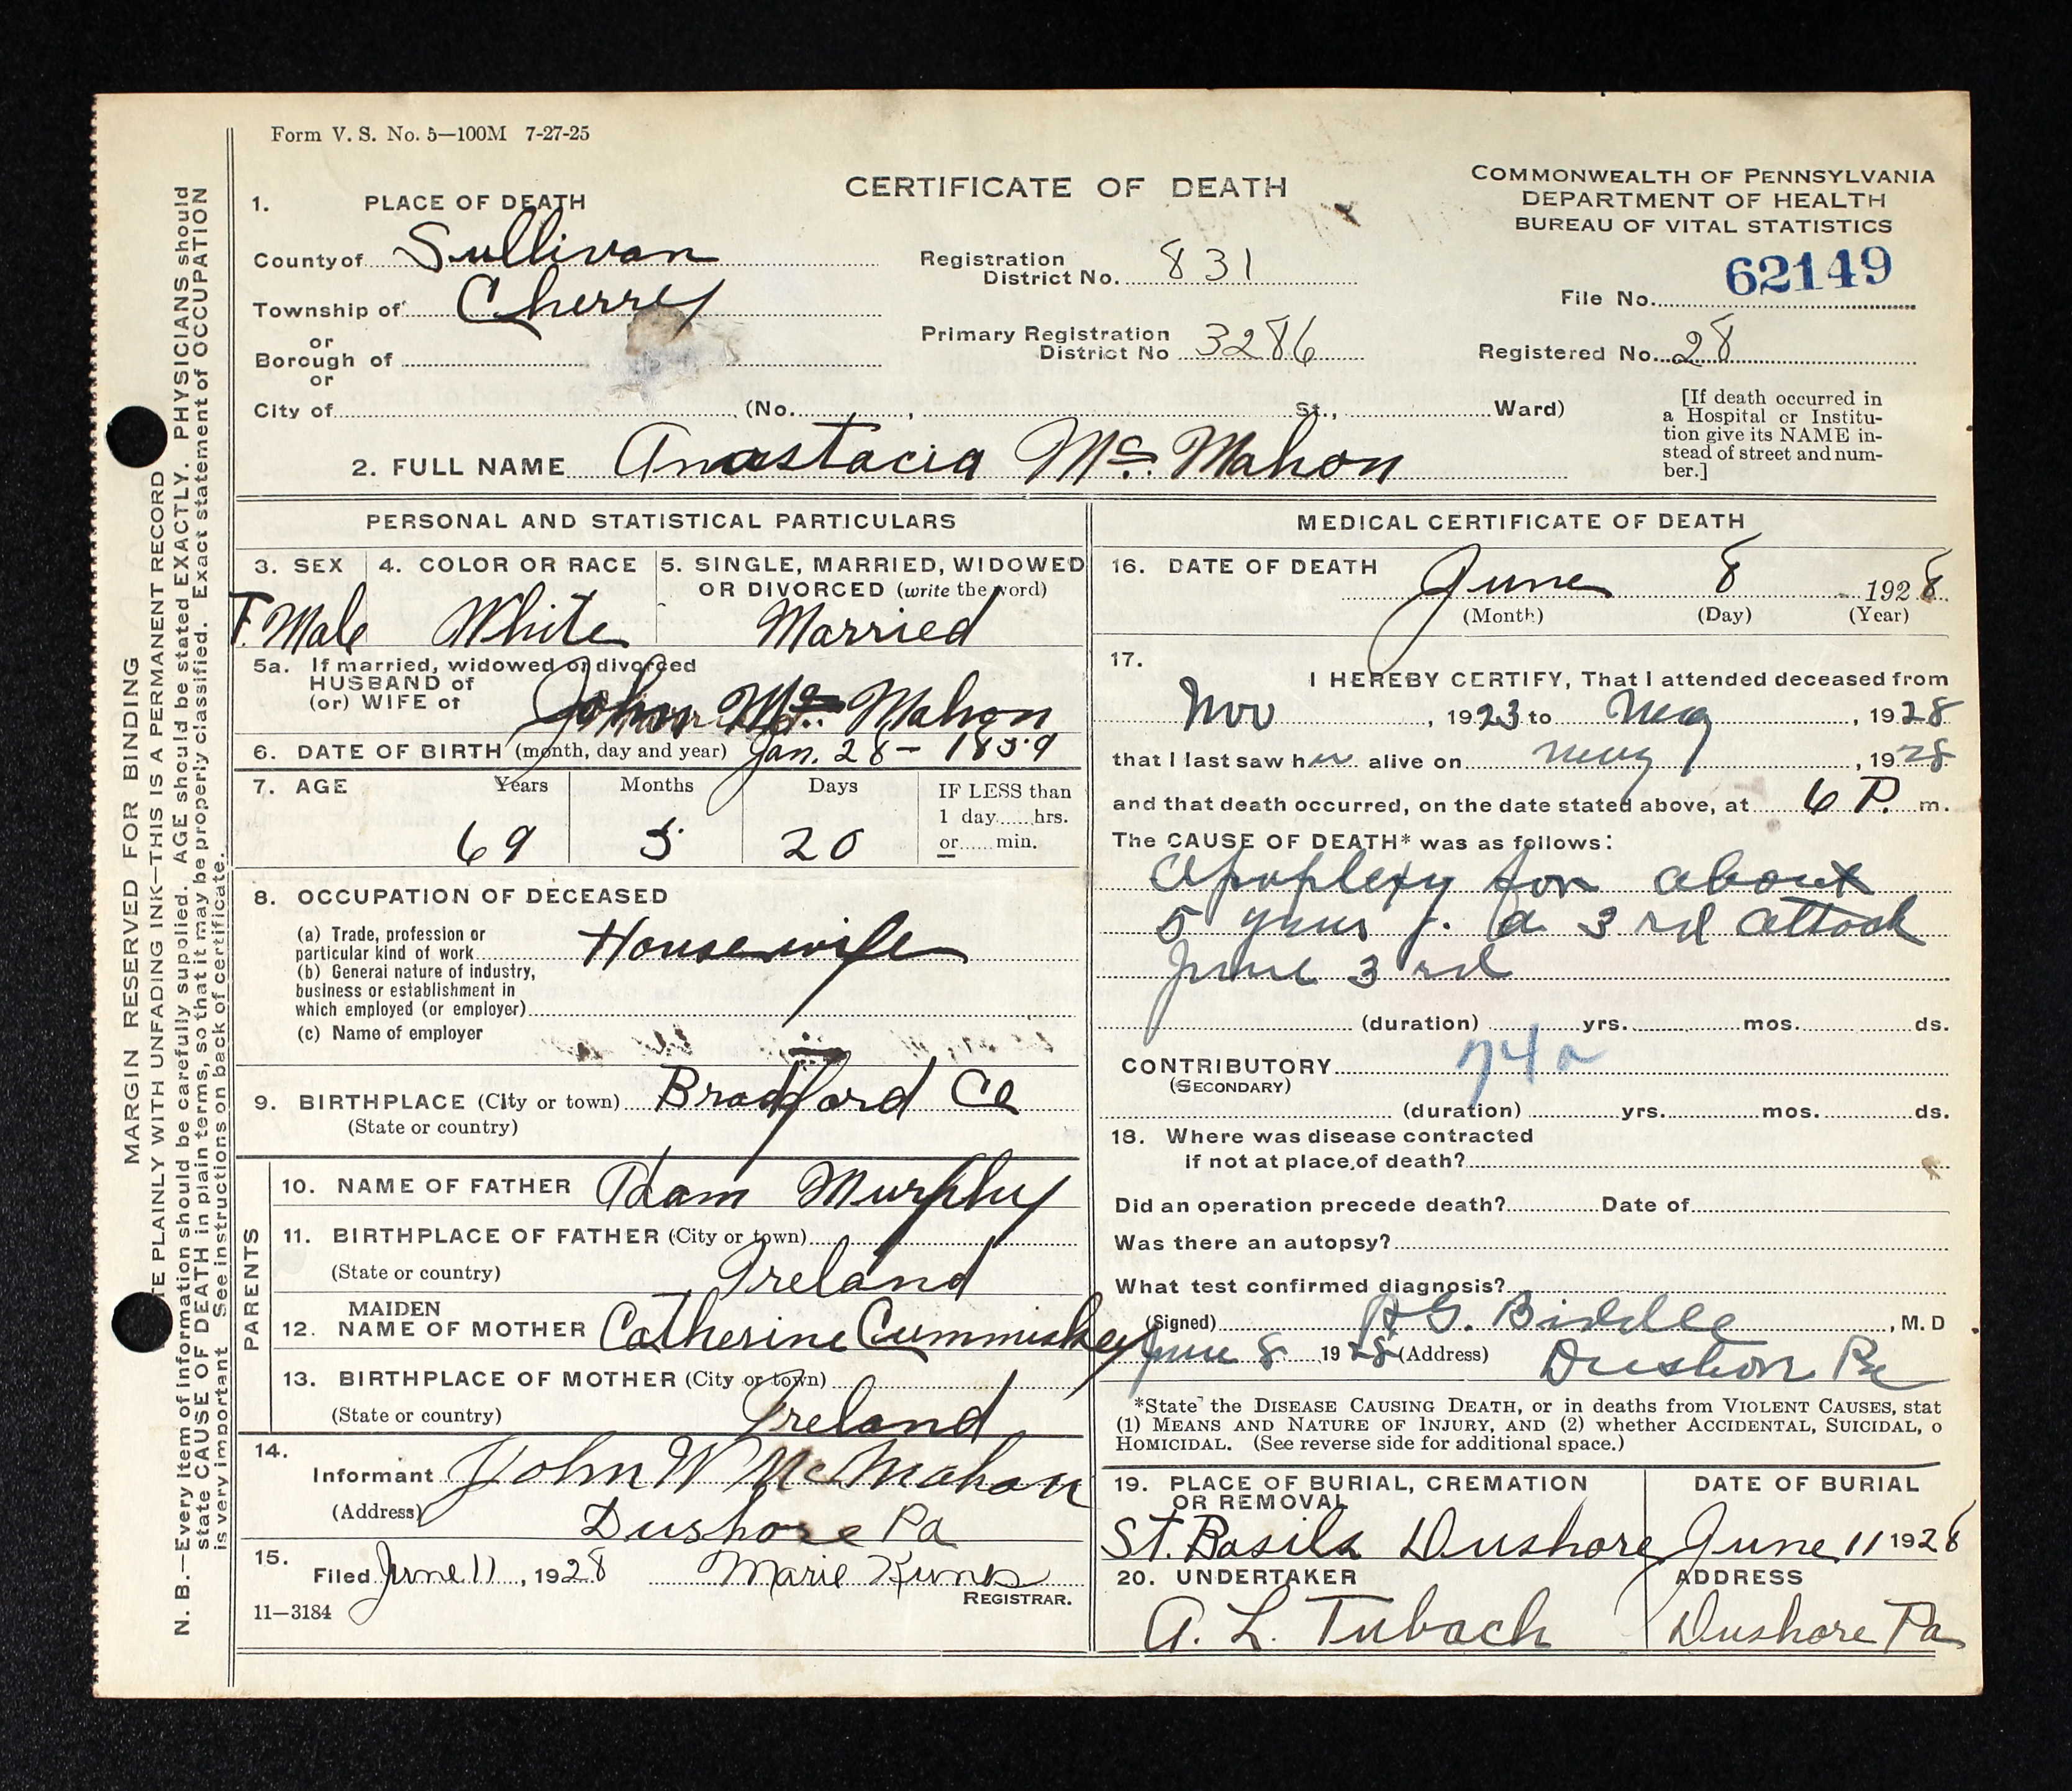 Form V. S. No. 5—100M 7-27-25
CERTIFICATE OF DEATH
COMMONWEALTH OF PENNSYLVANIA
DEPARTMENT OF HEALTH
BUREAU OF VITAL STATISTICS
1. PLACE OF DEATH
County of Sullivan
Registration District No. 831
62149
File No.
Township of Cherry
or
Borough of
or
Primary Registration District No 3286
Registered No. 28
City of (No. , St., Ward)
[If death occurred in
a Hospital or Institu-
tion give its NAME in-
stead of street and num-
ber.]
2. FULL NAME Anastacia Mc. Mahon
PERSONAL AND STATISTICAL PARTICULARS
3. SEX
4. COLOR OR RACE
5. SINGLE, MARRIED, WIDOWED
OR DIVORCED (write the word)
F. Male White Married
5a. If married, widowed or divorced
HUSBAND of
(or) WIFE of John Mc. Mahon
6. DATE OF BIRTH (month, day and year) Jan. 28 - 1859
7. AGE Years Months Days
IF LESS than
1 day......hrs.
or......min.
69 5 20
8. OCCUPATION OF DECEASED
(a) Trade, profession or
particular kind of work Housewife
(b) General nature of industry,
business or establishment in
which employed (or employer)
(c) Name of employer
9. BIRTHPLACE (City or town) Bradford Co
(State or country)
PARENTS
10. NAME OF FATHER Adam Murphy
11. BIRTHPLACE OF FATHER (City or town)
(State or country) Ireland
12. MAIDEN
NAME OF MOTHER Catherine Cummiskey
13. BIRTHPLACE OF MOTHER (City or town)
(State or country) Ireland
14.
Informant John W McMahon
(Address) Dushore Pa
15.
Filed June 11, 1928 Marie Kunes
REGISTRAR.
11—3184
MEDICAL CERTIFICATE OF DEATH
16. DATE OF DEATH June 8 1928
(Month) (Day) (Year)
17.
I HEREBY CERTIFY, That I attended deceased from
Nov, 1923 to May, 1928
that I last saw her alive on May, 1928
and that death occurred, on the date stated above, at 6 P. m.
The CAUSE OF DEATH* was as follows:
Apoplexy for about
5 years a 3rd attack
June 3rd
(duration) yrs. mos. ds.
CONTRIBUTORY 74a
(SECONDARY)
(duration) yrs. mos. ds.
18. Where was disease contracted
if not at place of death?
Did an operation precede death? Date of
Was there an autopsy?
What test confirmed diagnosis?
(Signed) Biddle, M. D
June 8 1928 (Address) Dushore Pa
*State the DISEASE CAUSING DEATH, or in deaths from VIOLENT CAUSES, stat
(1) MEANS AND NATURE OF INJURY, AND (2) whether ACCIDENTAL, SUICIDAL, o
HOMICIDAL. (See reverse side for additional space.)
19. PLACE OF BURIAL, CREMATION
OR REMOVAL
DATE OF BURIAL
St. Basils Dushore June 11 1928
20. UNDERTAKER
ADDRESS
A. L. Tubach Dushore Pa
MARGIN RESERVED FOR BINDING
TE PLAINLY WITH UNFADING INK—THIS IS A PERMANENT RECORD
N. B.—Every item of information should be carefully supplied. AGE should be stated EXACTLY. PHYSICIANS should
state CAUSE OF DEATH in plain terms, so that it may be properly classified. Exact statement of OCCUPATION
is very important. See instructions on back of certificate.